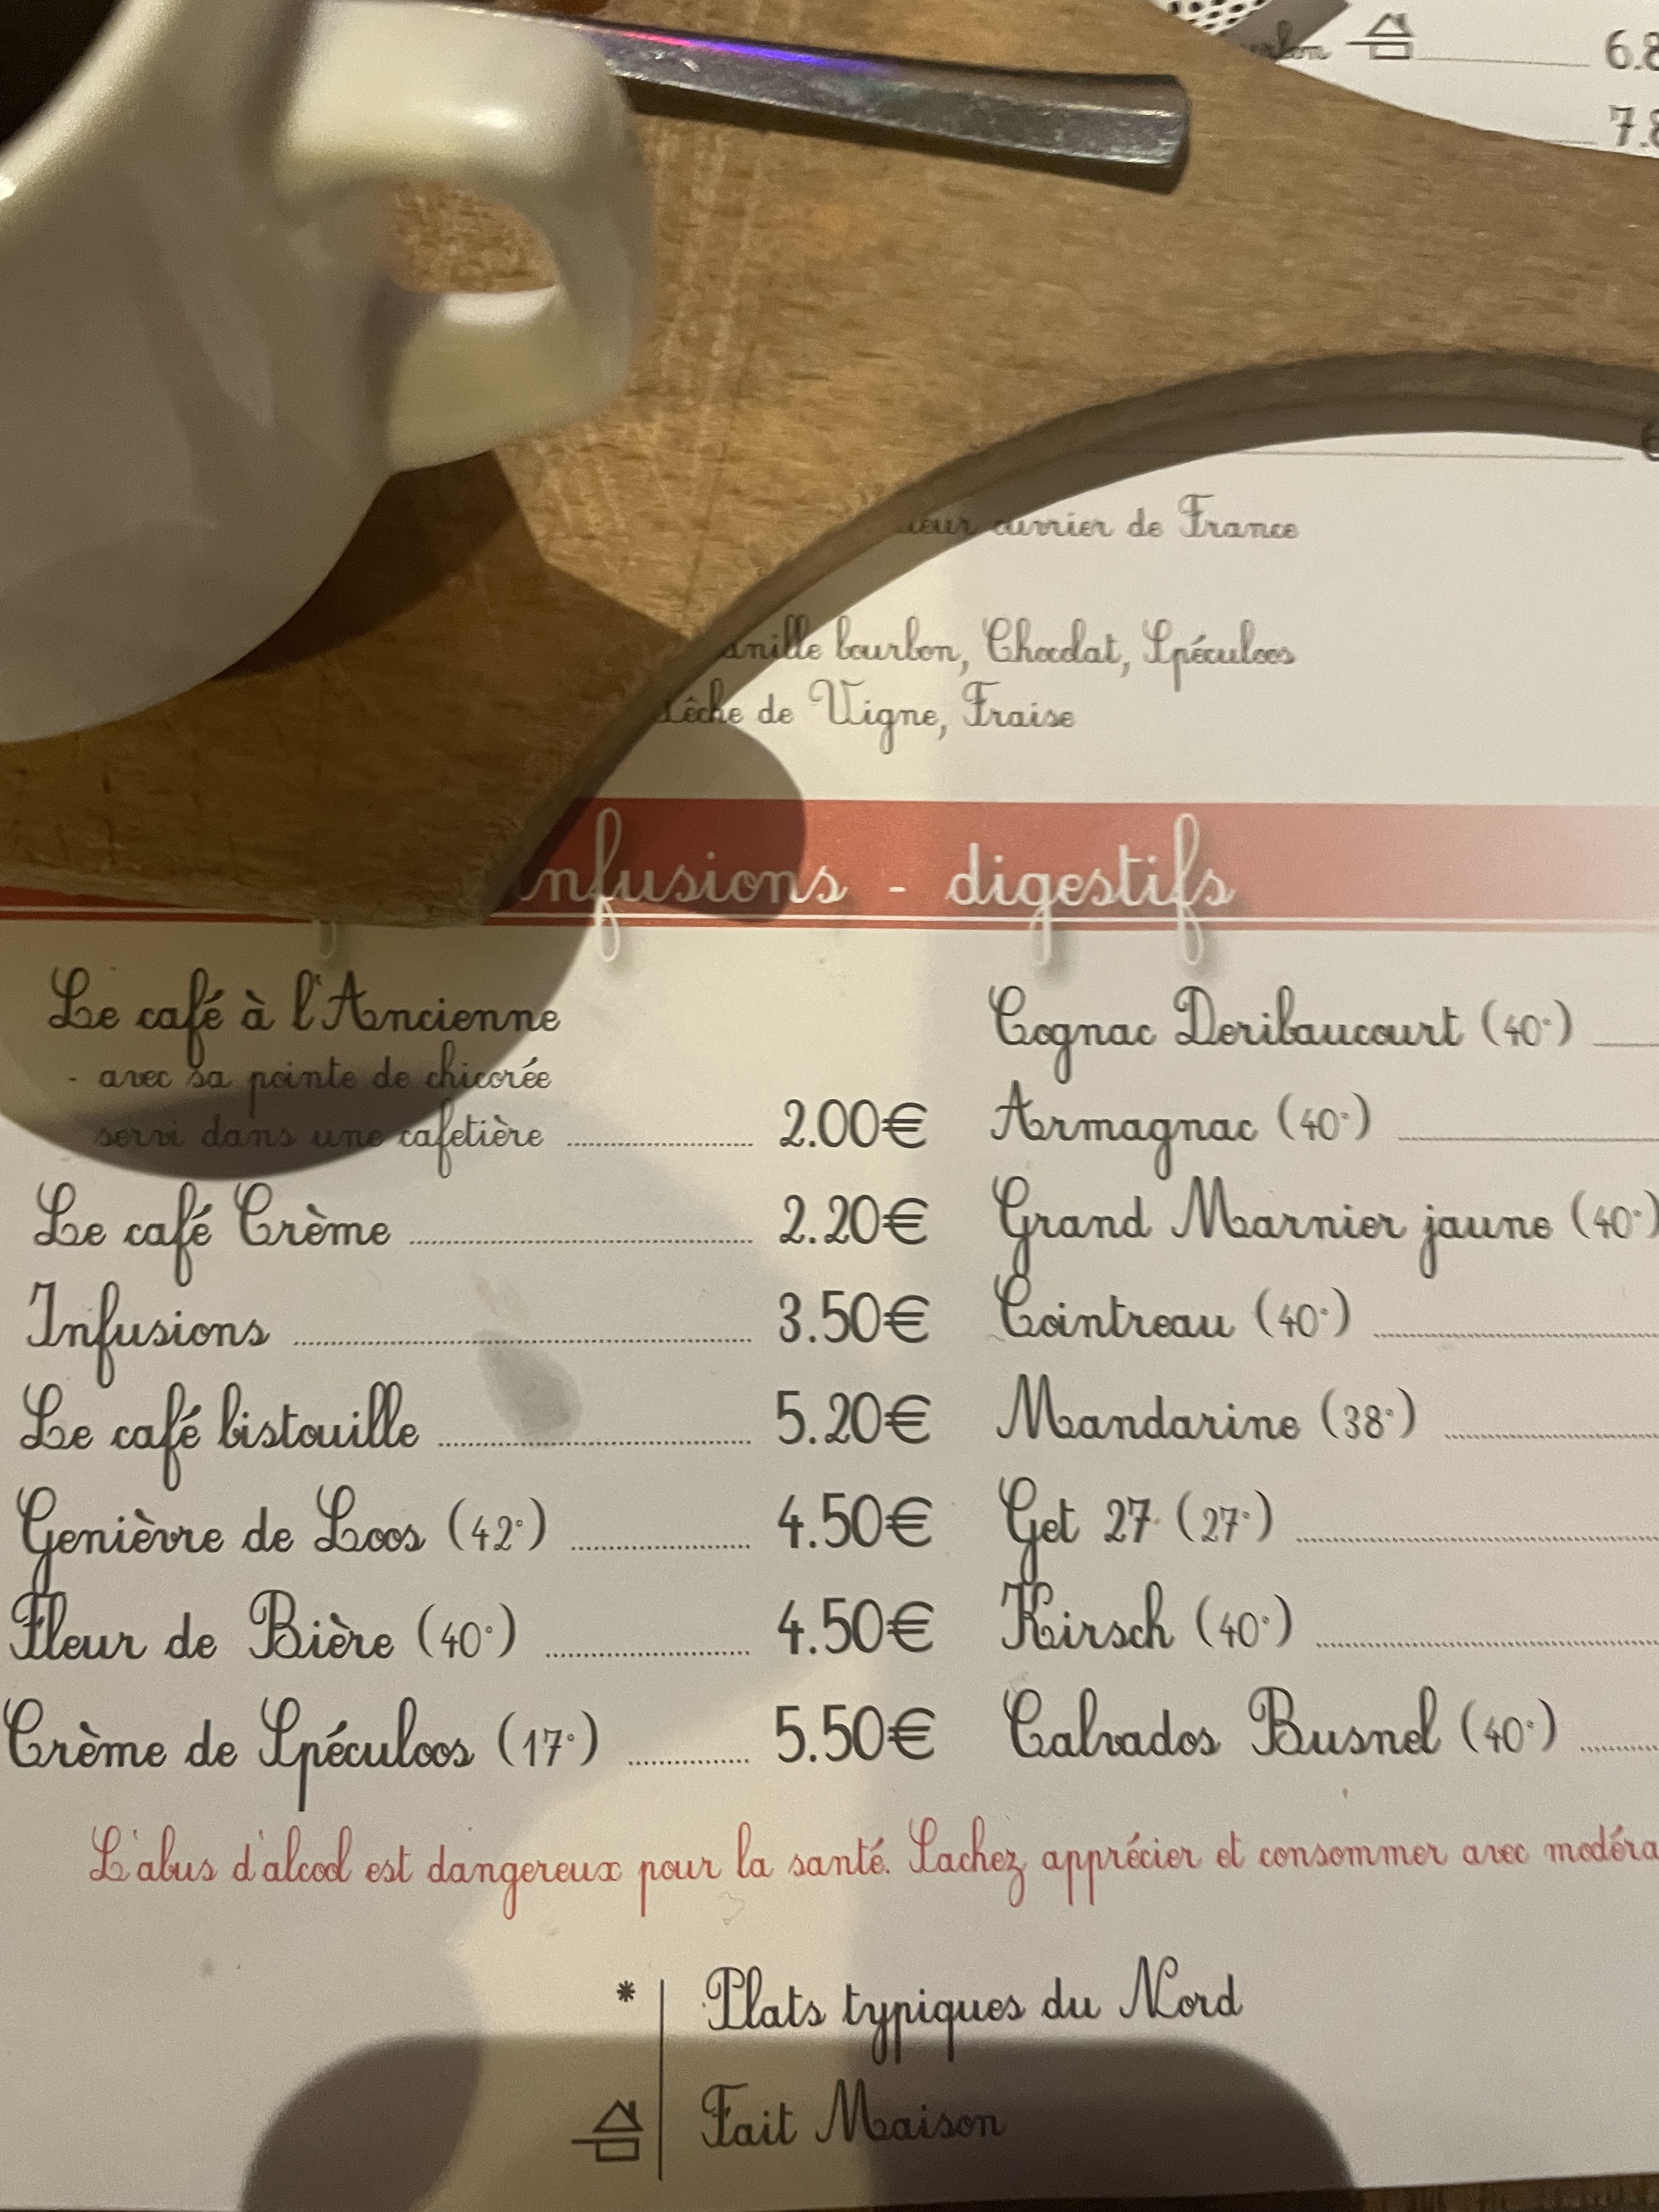 6.8
7.8
ouvrier de France
bourbon, Chocolat, Spéculoos
de Vigne, Fraise
infusions - digestifs
Le café à l'Ancienne
- avec sa pointe de chicorée
servi dans une cafetière ........ 2.00€
Le café Crème ........ 2.20€
Infusions ........ 3.50€
Le café bistouille ........ 5.20€
Genièvre de Loos (42°) ........ 4.50€
Fleur de Bière (40°) ........ 4.50€
Crème de Spéculoos (17°) ........ 5.50€
Cognac Deribaucourt (40°)
Armagnac (40°)
Grand Marnier jaune (40°)
Cointreau (40°)
Mandarine (38°)
Get 27 (27°)
Kirsch (40°)
Calvados Busnel (40°)
L'abus d'alcool est dangereux pour la santé. Sachez apprécier et consommer avec modéra
* Plats typiques du Nord
Fait Maison